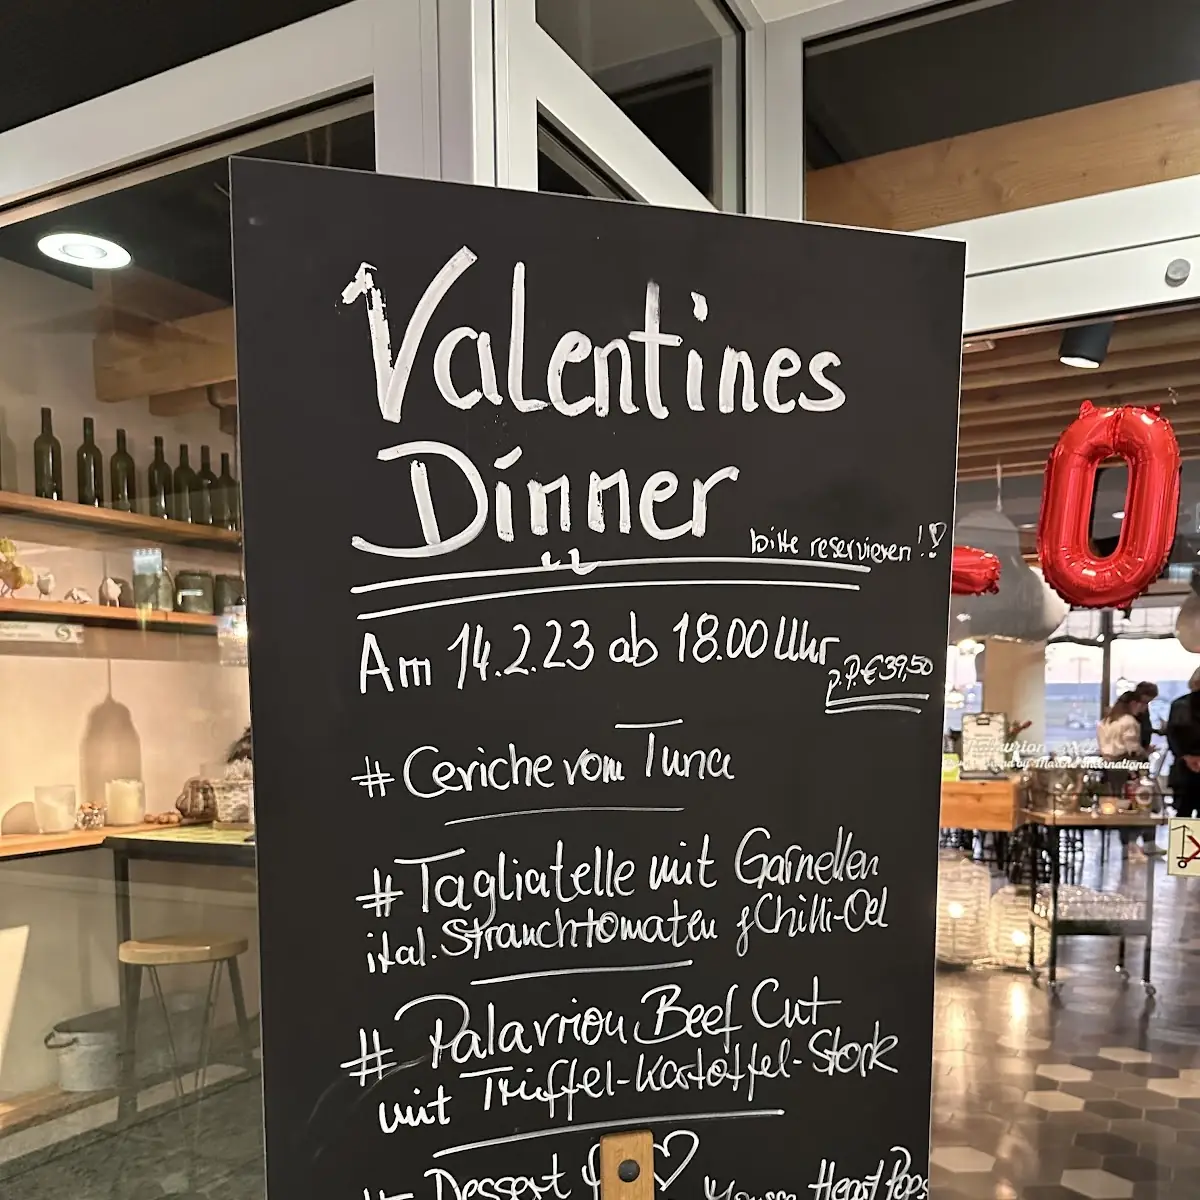 Valentines
Dinner
bitte reservieren!
Am 14.2.23 ab 18.00 Uhr
p.P. € 39,50
# Ceviche vom Tuna
# Tagliatelle mit Garnelen
ital. Strauchtomaten & Chilli-Oel
# Palavrion Beef Cut
mit Trüffel-Kartoffel-Stock
# Dessert
0
by Marché International